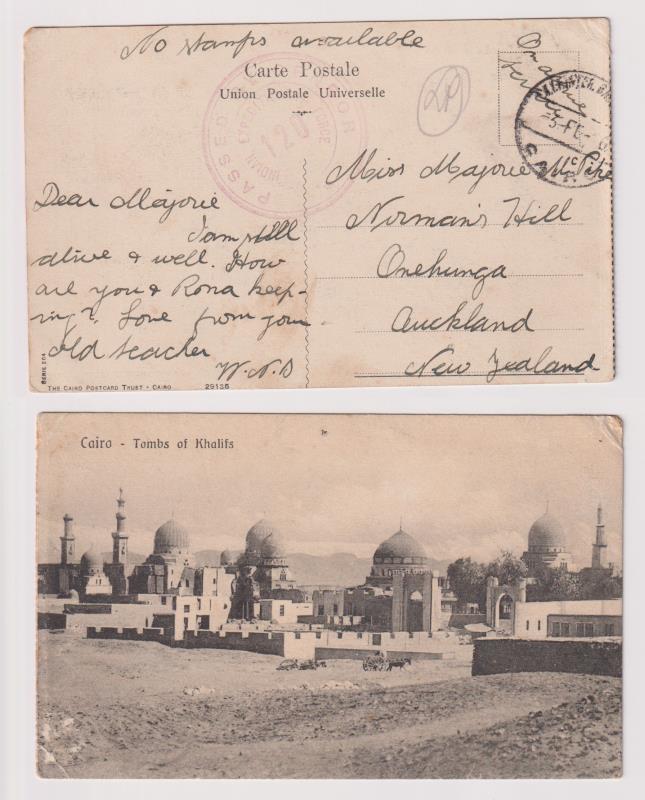 No stamps available
On active
service
Carte Postale
Union Postale Universelle
PASSED CENSOR
INDIAN EXPED FORCE
120
5 FE
Dear Marjorie
I am still
alive & well. How
are you & Rona keep-
ing? Love from your
old teacher
W.N.D
Miss Majorie McPike
Nirman's Hill
Onehunga
Auckland
New Zealand
SERIE 204
THE CAIRO POSTCARD TRUST - CAIRO
29135
Cairo - Tombs of Khalifs